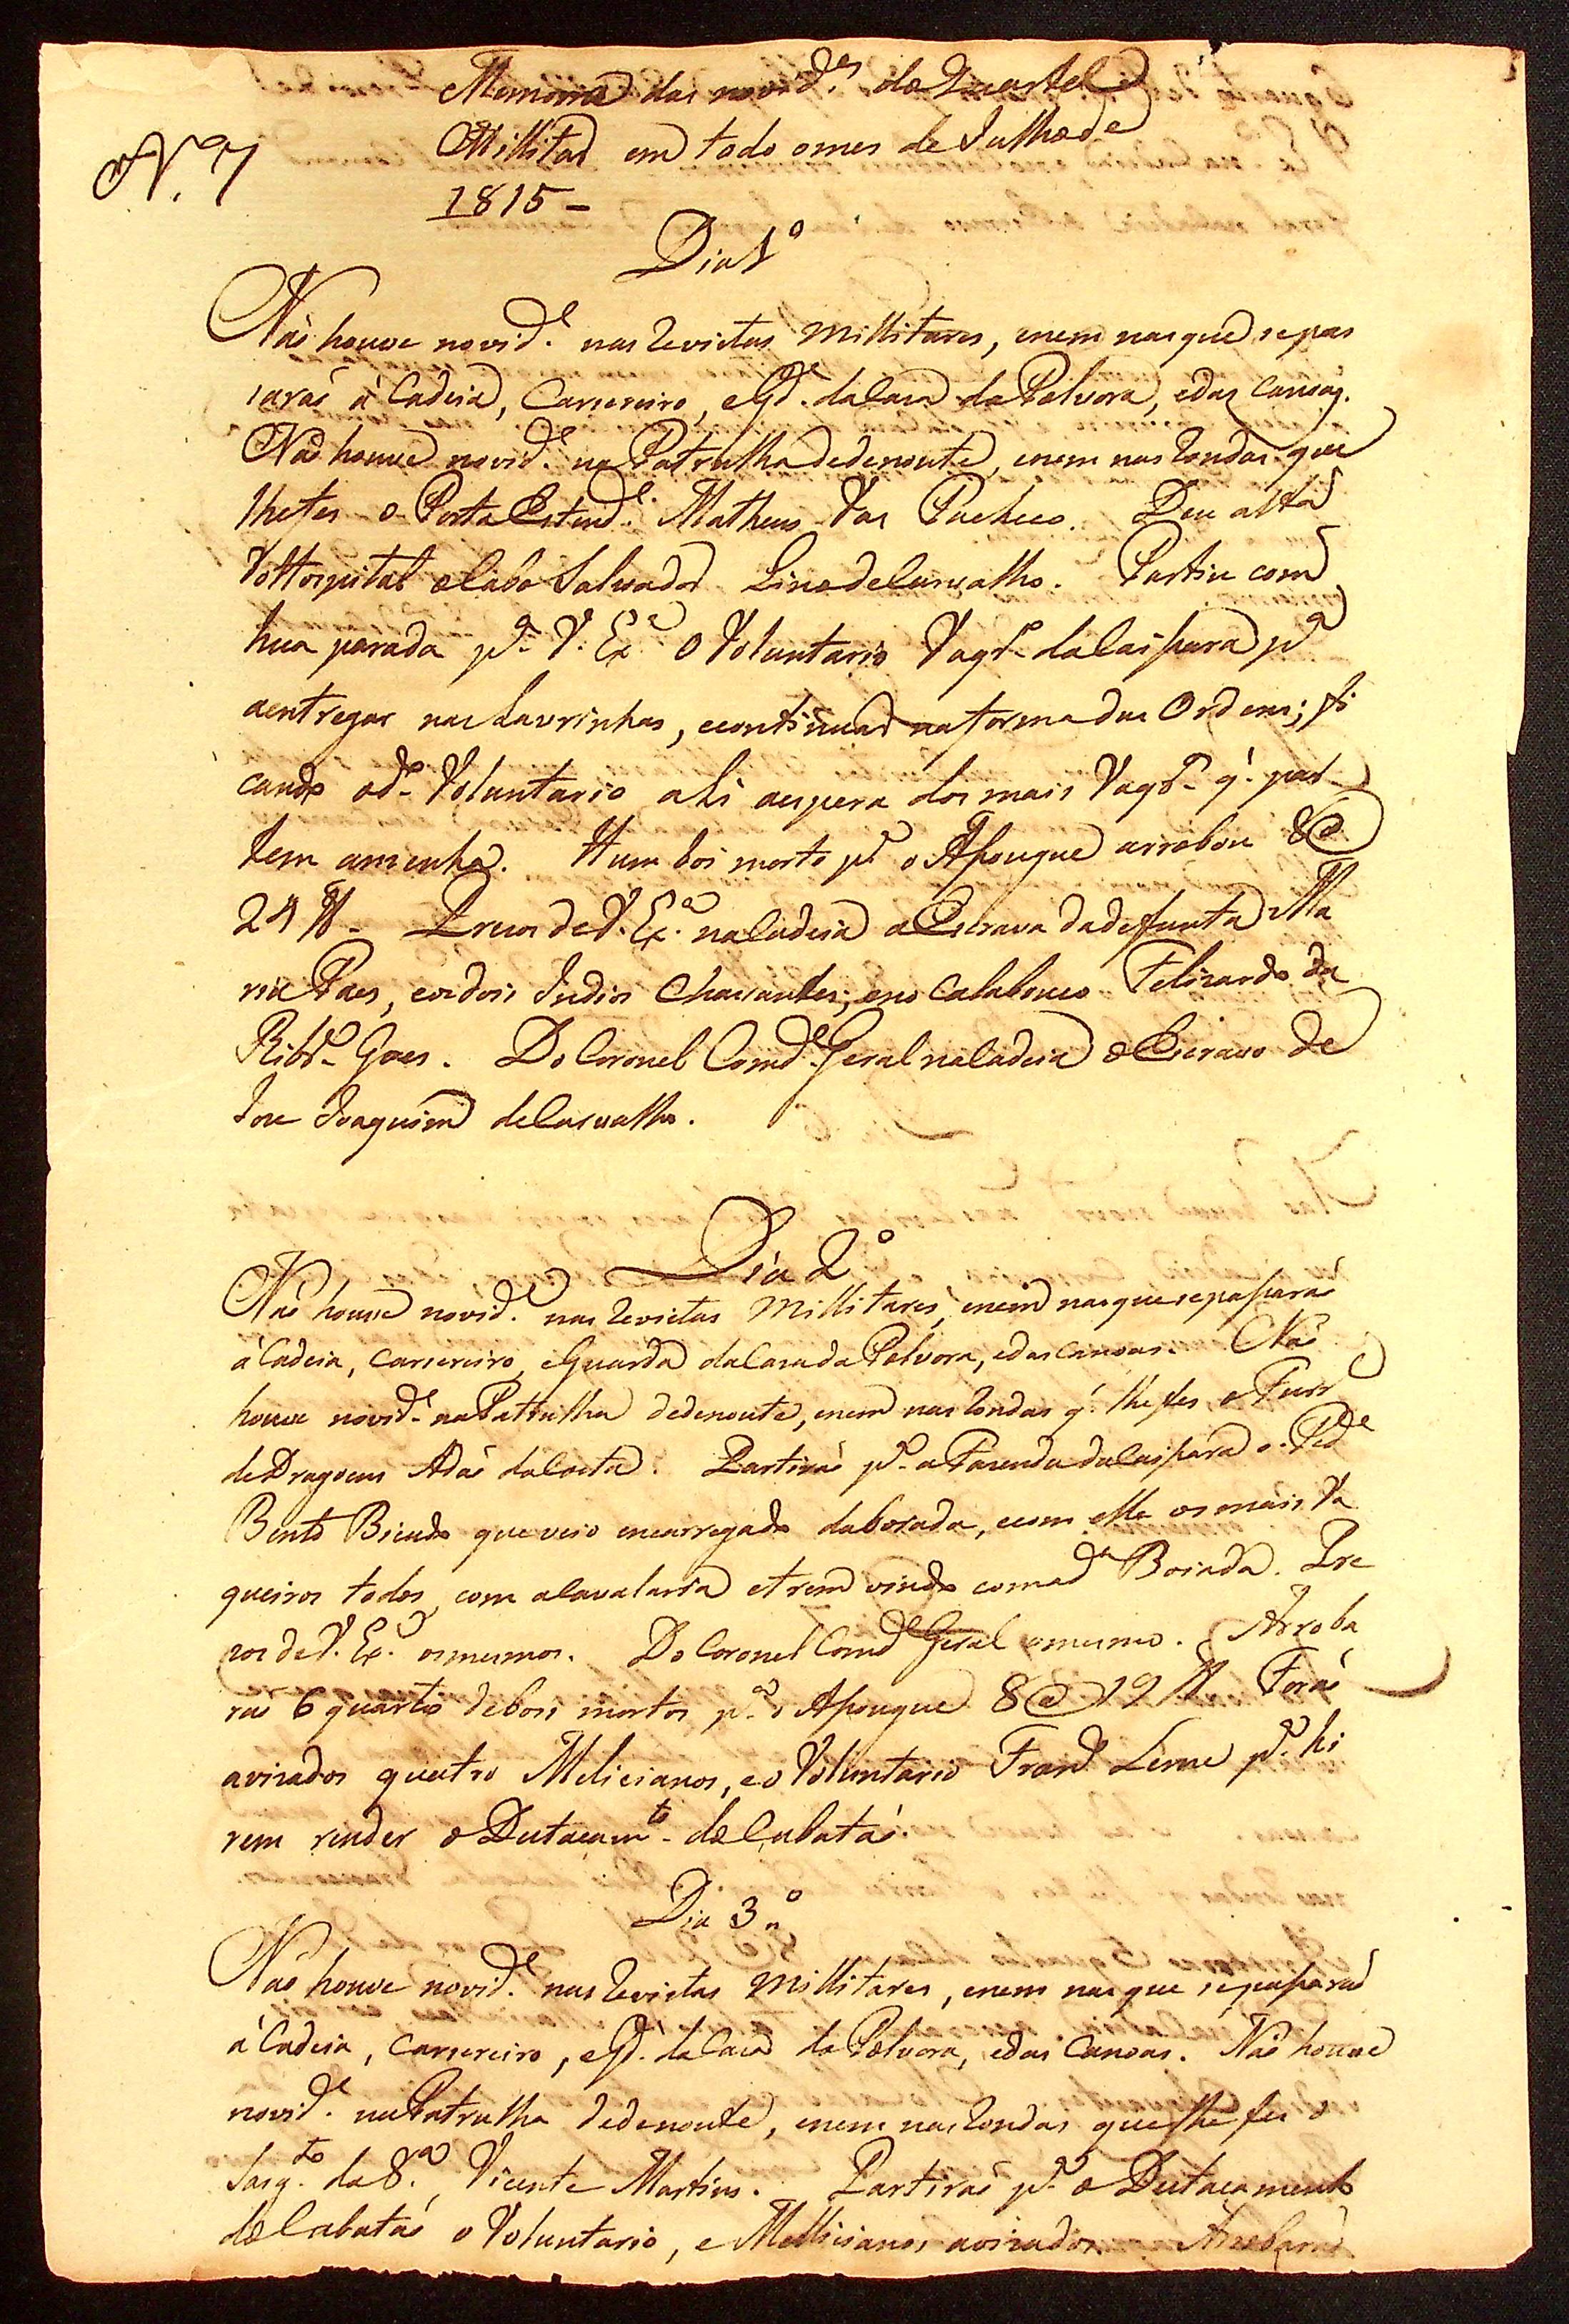 Memoria das novid.es do Quartel
Millitar em todo o mes de Julho de
N.º 7
1815 –
Dia 1º
Não houve novid.e nas Revistas Millitares, e nem nas que se pas
sarão á Cadeia, Carsereiro, e Gd.ª da Casa da Polvora, e das Canoas.
Não houve novid.e na Patrulha dedenoute, e nem nas Rondas que
lhe fes o Porta Estend.e Matheus Vas Pacheco. Deu alta
do Hospital o Cabo Salvador Lino de Carvalho. Partiu com
hua parada p.ª V. Ex.ª o Voluntario Vaqr.º da Caissara p.ª
a entregar nas Lavrinhas, e continuar na forma das Ordens; fi
cando o d.º Voluntario ali a espera dos mais Vaqr.os q̃ par
tem amenha. Hum boi morto p.ª o Assougue arrobou 8 @
24 ℔ – Presos de V. Ex.ª na Cadeia a Escrava da defunta Ma
ria Paes, e os dois Indios Chavantes; e no Calabouco Felisardo da
Ribr.ª Goes. Do Coronel Comd.e Geral na Cadeia o Escravo de
Jose Joaquim de Carvalho.
Dia 2º
Não houve novid.e nas Revistas Millitares, e nem nas que se passarão
á Cadeia, Carsereiro, e Guarda da Casa da Polvora, e das Canoas. Não
houve novid.e na Patrulha dedenoute, e nem nas Rondas q̃ lhe fes o Furr.el
de Dragoens Adão da Costa. Partirão p.ª a Fasenda da Caissara o Ped.e
Bento Bicudo que veio encarregado da boiada, e com elle os mais Va
queiros todos, com a Cavalaria e trem vindo com a d.ª Boiada. Pre
zos de V. Ex.ª os mesmos. Do Coronel Comd.e Geral o mesmo. Arroba
rão 6 quartos de bois mortos p.ª o Assougue 8 @ 19 ℔ Forão
avisados quatro Milicianos, e o Voluntario Fran.co Leme p.ª hi
rem render o Destacam.to de Cubatão.
Dia 3º
Não houve novid.e nas Revistas Millitares, e nem nas que se passarão
á Cadeia, Carsereiro, e Gd.ª da Casa da Polvora, e das Canoas. Não houve
novid.e na Patrulha dedenoute, e nem nas Rondas que lhe fes o
Sarg.to da 8.ª Vicente Martins. Partirão p.ª o Destacamento
do Cubatão o Voluntario, e Millicianos avisados. Arrobarão